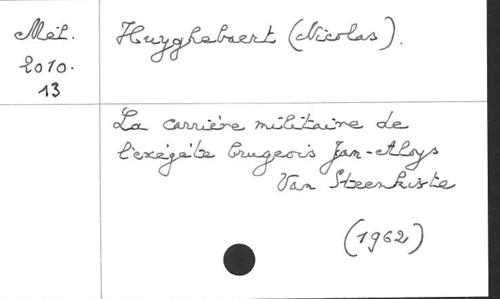 Mél.
2010.
13
Huyghebaert (Nicolas).
La carrière militaire de
l'exégète brugeois Jan-Aloys
Van Steenkiste
(1962)